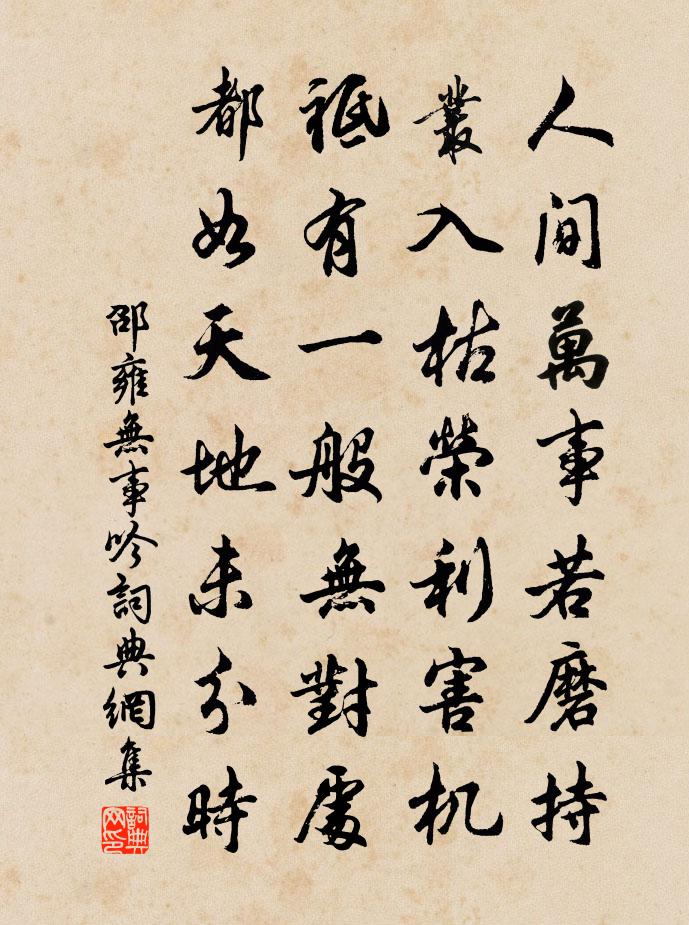 人間萬事若磨持
叢入枯榮利害机
祗有一般無對處
都如天地未分時
邵雍無事吟詞典網集
詞典网印